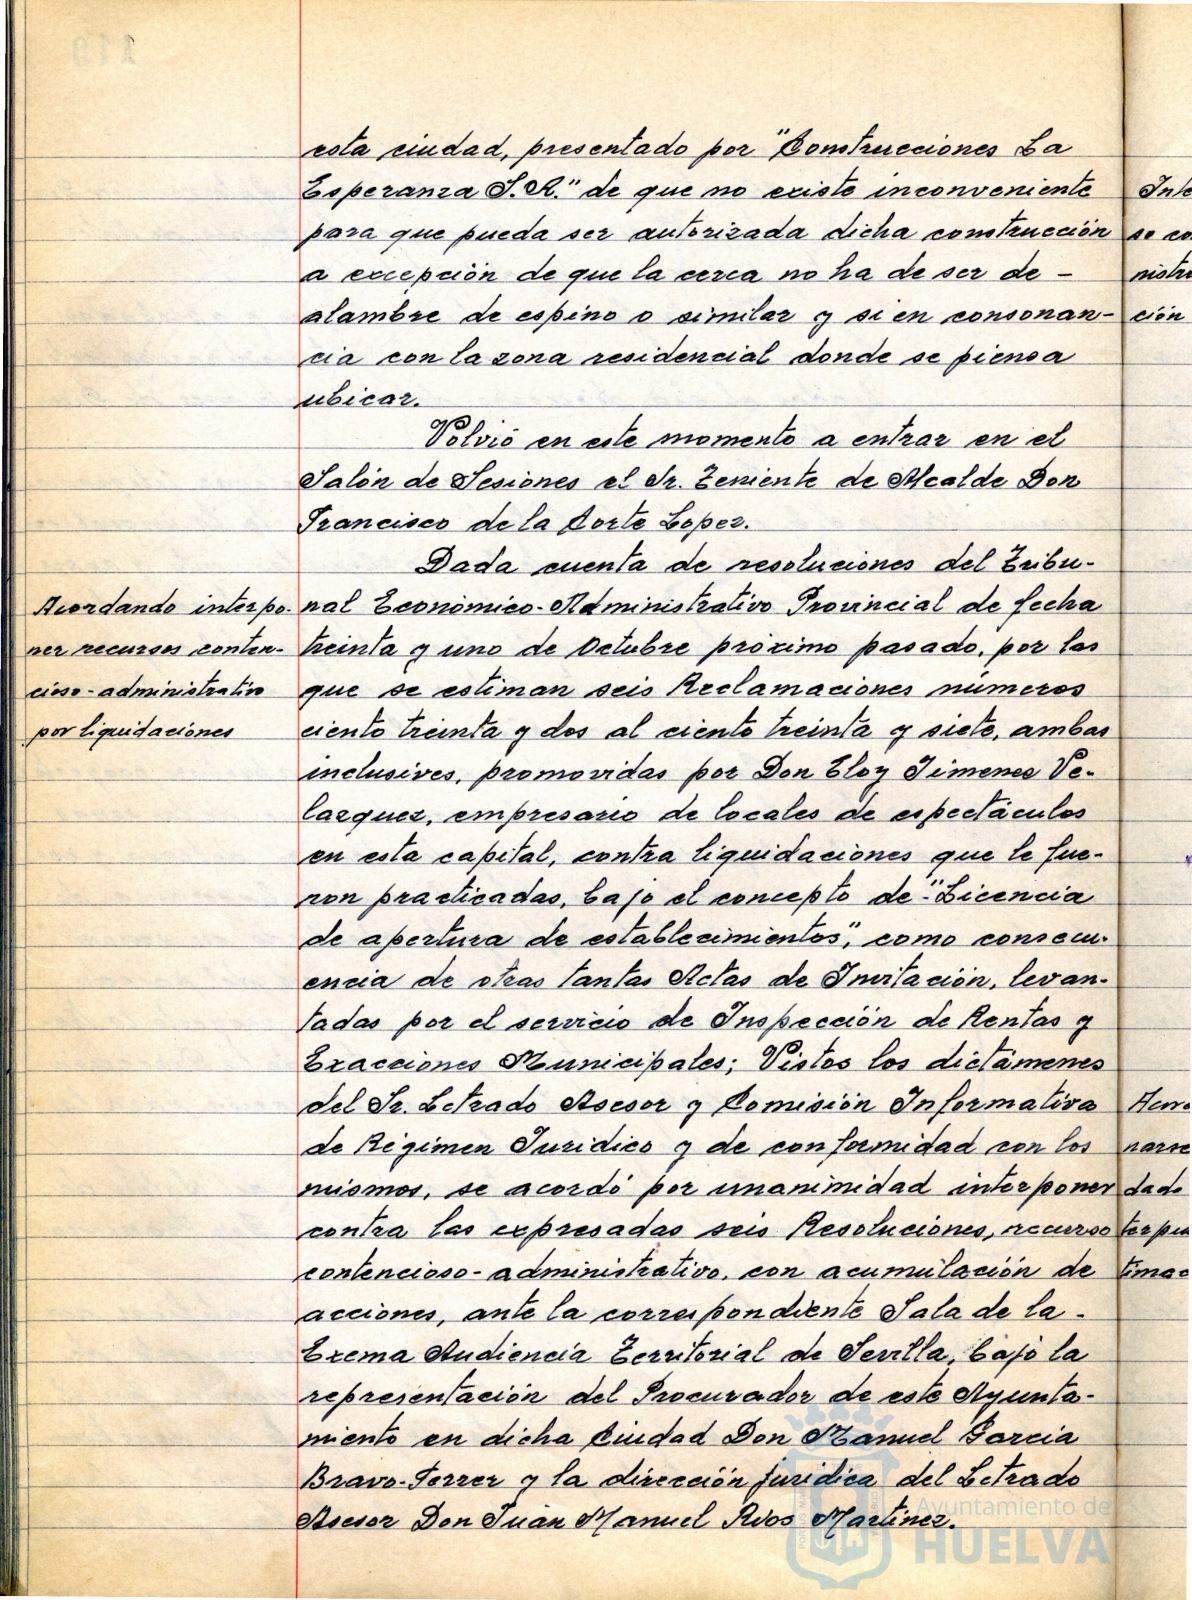 esta ciudad, presentado por "Construcciones La
Esperanza S.A." de que no existe inconveniente
para que pueda ser autorizada dicha construcción
a excepción de que la cerca no ha de ser de -
alambre de espino o similar y si en consonan-
cia con la zona residencial donde se piensa
ubicar.
Volvió en este momento a entrar en el
Salón de Sesiones el Sr. Teniente de Alcalde Don
Francisco de la Corte Lopez.
Acordando interpo-
ner recursos conten-
cioso-administrativo
por liquidaciones
Dada cuenta de resoluciones del Tribu-
nal Económico-Administrativo Provincial de fecha
treinta y uno de Octubre próximo pasado, por las
que se estiman seis Reclamaciones números
ciento treinta y dos al ciento treinta y siete, ambas
inclusives, promovidas por Don Eloy Jimenez Ve-
lazquez, empresario de locales de espectáculos
en esta capital, contra liquidaciones que le fue-
ron practicadas, bajo el concepto de "Licencia
de apertura de establecimientos", como consecu-
encia de otras tantas Actas de Invitación, levan-
tadas por el servicio de Inspección de Rentas y
Exacciones Municipales; Vistos los dictámenes
del Sr. Letrado Asesor y Comisión Informativa
de Régimen Juridico y de conformidad con los
mismos, se acordó por unanimidad interponer
contra las expresadas seis Resoluciones, recurso
contencioso-administrativo, con acumulación de
acciones, ante la correspondiente Sala de la -
Excma Audiencia Territorial de Sevilla, bajo la
representación del Procurador de este Ayunta-
miento en dicha Ciudad Don Manuel Garcia
Bravo-Ferrer y la dirección juridica del Letrado
Asesor Don Juan Manuel Rvos Martinez.
Inte
se co
nistra
ción
narse
dado
Ayuntamiento de
HUELVA